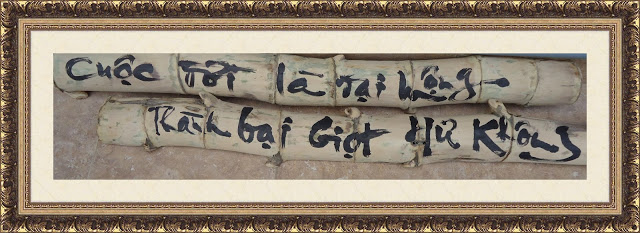 Cuộc Tốt là tại hông
Thành bại Giọt Hư Không